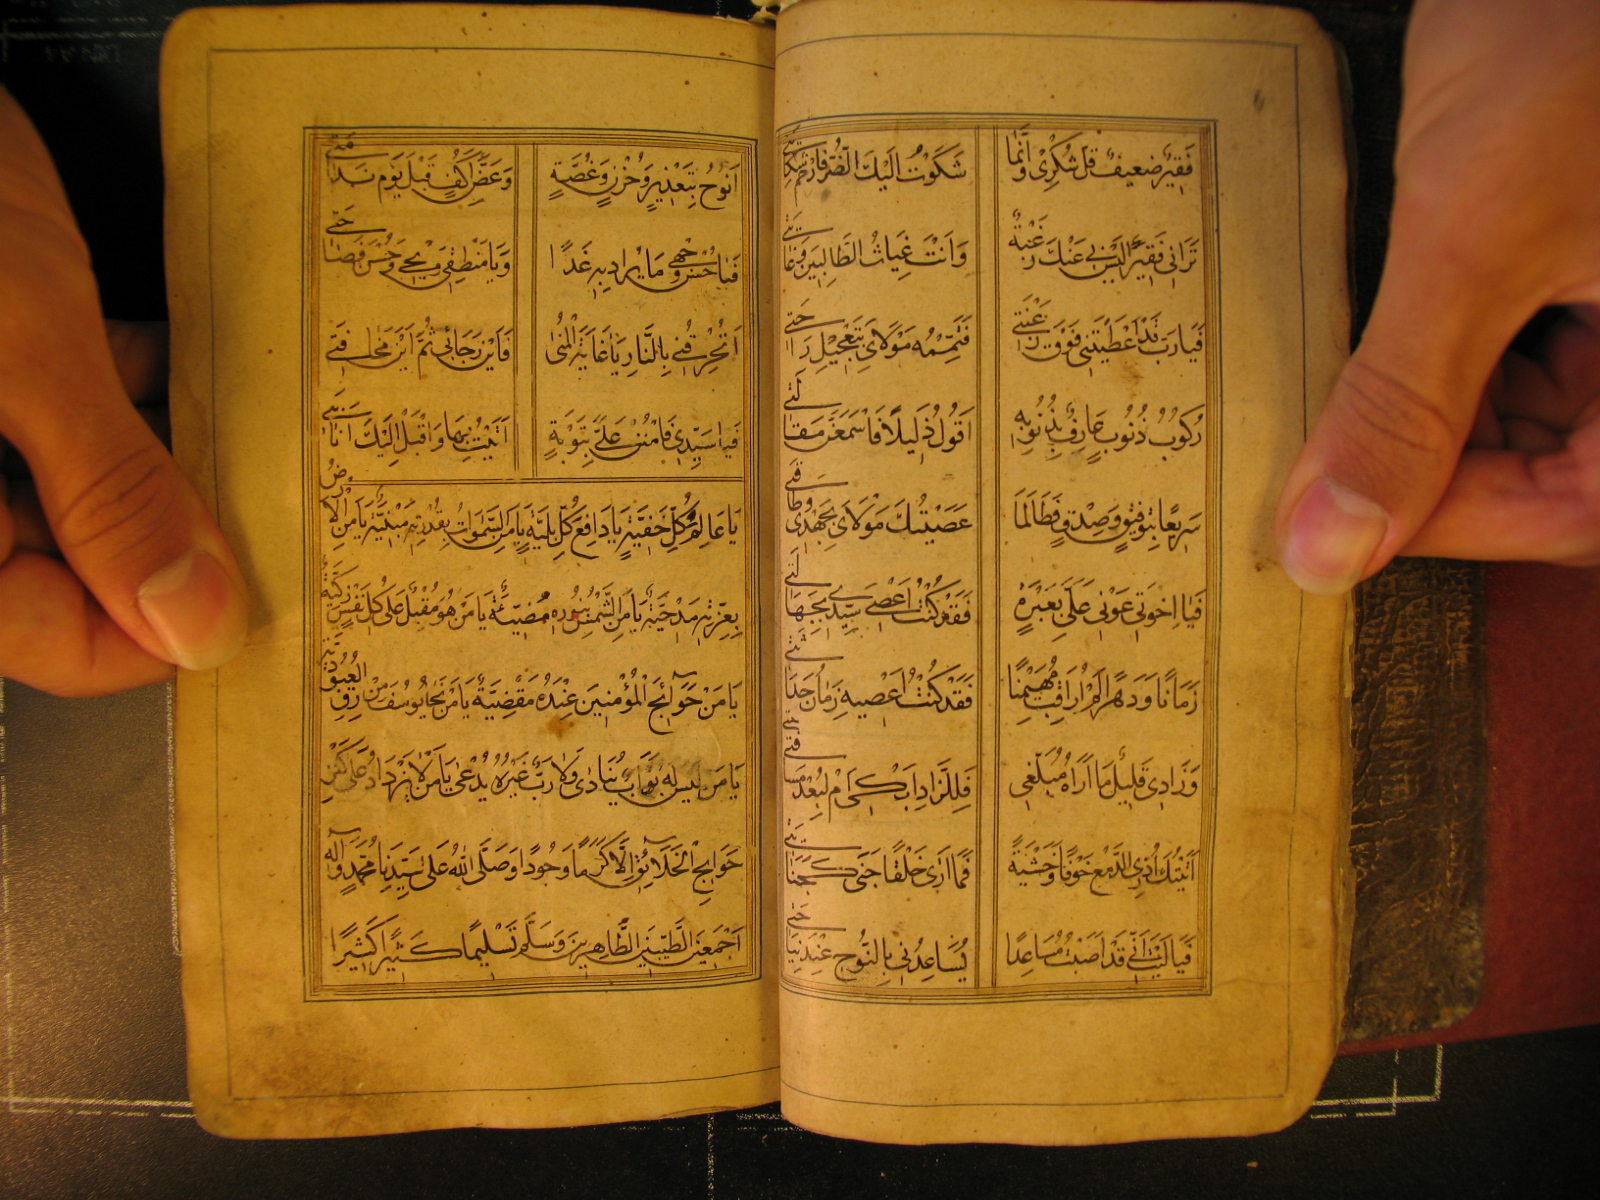 فَقِيرٌ ضَعِيفٌ قَلَّ شُكْرِي وَإِنَّمَا شَكَوْتُ إِلَيْكَ الضُّرَّ فَارْحَمْ شِكَايَتِي
تَرَانِي فَقِيرًا لَيْسَ بِي عَنْكَ رَغْبَةٌ وَأَنْتَ غِيَاثُ الطَّالِبِينَ وَغَايَتِي
فَيَا رَبِّ قَدْ أَعْطَيْتَنِي فَوْقَ رَغْبَتِي فَتَمِّمْهُ مَوْلَايَ بِتَعْجِيلِ رَاحَتِي
رُكُوبُ ذُنُوبٍ عَارِفٌ بِذُنُوبِهِ أَقُولُ ذَلِيلًا فَاسْمَعَنَّ مَقَالَتِي
سَرِيعًا بِتَوْفِيقٍ وَصِدْقٍ فَطَالَمَا عَصَيْتُكَ مَوْلَايَ بِجُهْدِي وَطَاقَتِي
فَيَا إِخْوَتِي عَوْنِي عَلَيَّ بِعَبْرَةٍ فَقَدْ كُنْتُ أَعْصِي سَيِّدِي بِجَهَالَتِي
زَمَانًا وَدَهْرًا لَمْ أُرَاقِبْ مُهَيْمِنًا فَقَدْ كُنْتُ أَعْصِيهِ زَمَانَ حَدَاثَتِي
وَزَادِي قَلِيلٌ مَا أَرَاهُ مُبَلِّغِي فَلِلزَّادِ أَبْكِي أَمْ لِبُعْدِ مَسَافَتِي
أَتَيْتُكَ أُذْرِي الدَّمْعَ خَوْفًا وَخَشْيَةً فَمَا أَرَى خَلْقًا جَنَى كَجِنَايَتِي
فَيَا لَيْتَ أَنِّي قَدْ أَصَبْتُ مُسَاعِدًا يُسَاعِدُنِي بِالنَّوْحِ عِنْدَ نِيَاحَتِي
أَنُوحُ بِتَعْذِيرٍ وَحُزْنٍ وَغُصَّةٍ وَعَضِّ أَكُفٍّ قَبْلَ يَوْمِ نَدَامَتِي
فَيَا حُسْنَ وَجْهِي مَا يُرَادُ بِهِ غَدًا وَيَا مَنْطِقِي وَيْحِي وَحُسْنَ فَصَاحَتِي
أَتُحْرِقُنِي بِالنَّارِ يَا غَايَةَ الْمُنَى فَأَيْنَ رَجَائِي ثُمَّ أَيْنَ مَخَافَتِي
فَيَا سَيِّدِي فَامْنُنْ عَلَيَّ بِتَوْبَةٍ أَتَيْتُ بِهَا وَاقْبَلْ إِلَيْكَ إِنَابَتِي
يَا عَالِمَ كُلِّ خَفِيَّةٍ يَا دَافِعَ كُلِّ بَلِيَّةٍ يَا مَنِ السَّمٰوَاتُ بِقُدْرَتِهِ مَبْنِيَّةٌ يَا مَنِ الْأَرْضُ
بِعِزَّتِهِ مَدْحِيَّةٌ يَا مَنِ الشَّمْسُ بِنُورِهِ مُضِيئَةٌ يَا مَنْ هُوَ مُقْبِلٌ عَلَى كُلِّ نَفْسٍ زَكِيَّةٍ
يَا مَنْ حَوَائِجُ الْمُؤْمِنِينَ عِنْدَهُ مَقْضِيَّةٌ يَا مَنْ نَجَا يُوسُفَ مِنْ رِقِّ الْعُبُودِيَّةِ
يَا مَنْ لَيْسَ لَهُ بَوَّابٌ يُنَادَى وَلَا رَبٌّ غَيْرُهُ يُدْعَى يَا مَنْ لَا يَزْدَادُ عَلَى كَثْرَةِ
حَوَائِجِ الْخَلَائِقِ إِلَّا كَرَمًا وَجُودًا وَصَلَّى اللّٰهُ عَلَى سَيِّدِنَا مُحَمَّدٍ وَآلِهِ
أَجْمَعِينَ الطَّيِّبِينَ الطَّاهِرِينَ وَسَلَّمَ تَسْلِيمًا كَثِيرًا كَثِيرًا